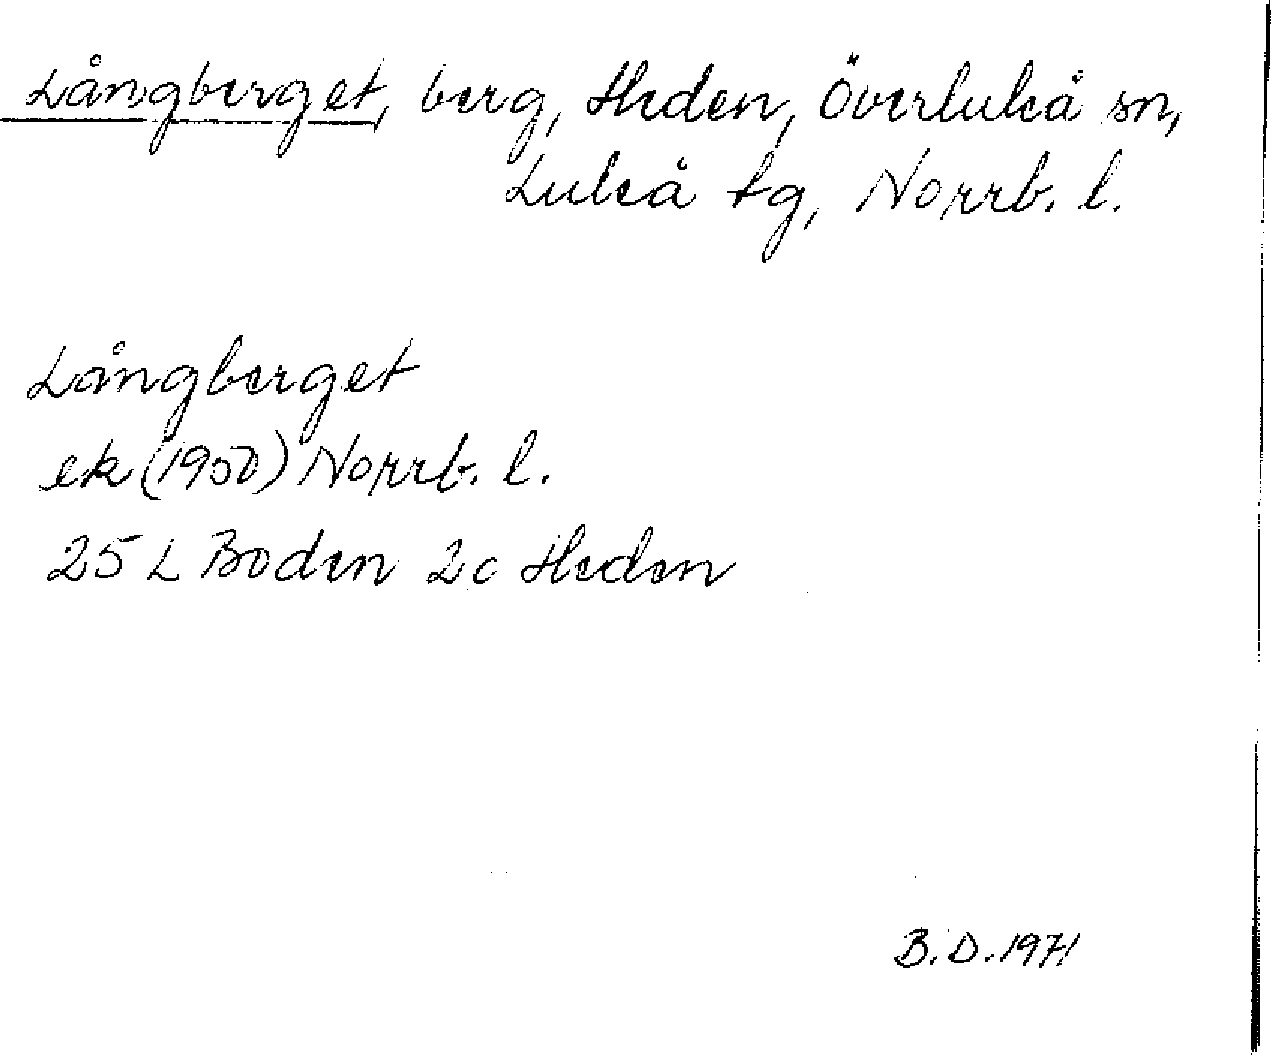 Långberget, berg, Heden, Överluleå sn,
Luleå tg, Norrb. l.
Långberget
ek (1950) Norrb. l.
25 L Boden 2c Heden
B. D. 1971